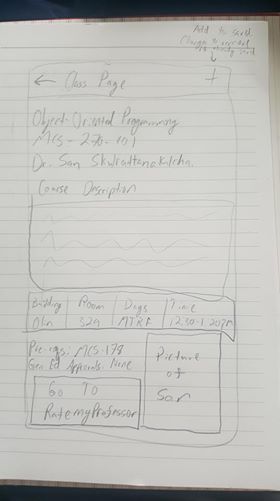 Add to sched
Change to
if already sched
← Class Page +
Object-Oriented Programming
MCS-270-101
Dr. San Skulrattanakulchai
Course Description
Building Room Days Time
Olin 329 MTRF 12:30-1:20PM
Pre-reqs: MCS-178
Gen Ed Approvals: None
Go TO
RateMyProfessor
Picture
of
San